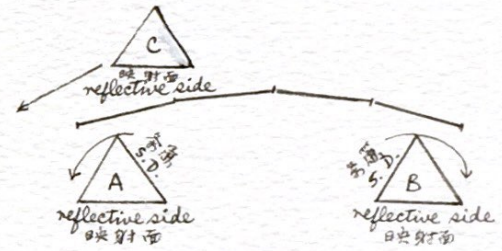 C
映射面
reflective side
S.D.
A
reflective side
映射面
S.D.
B
reflective side
映射面